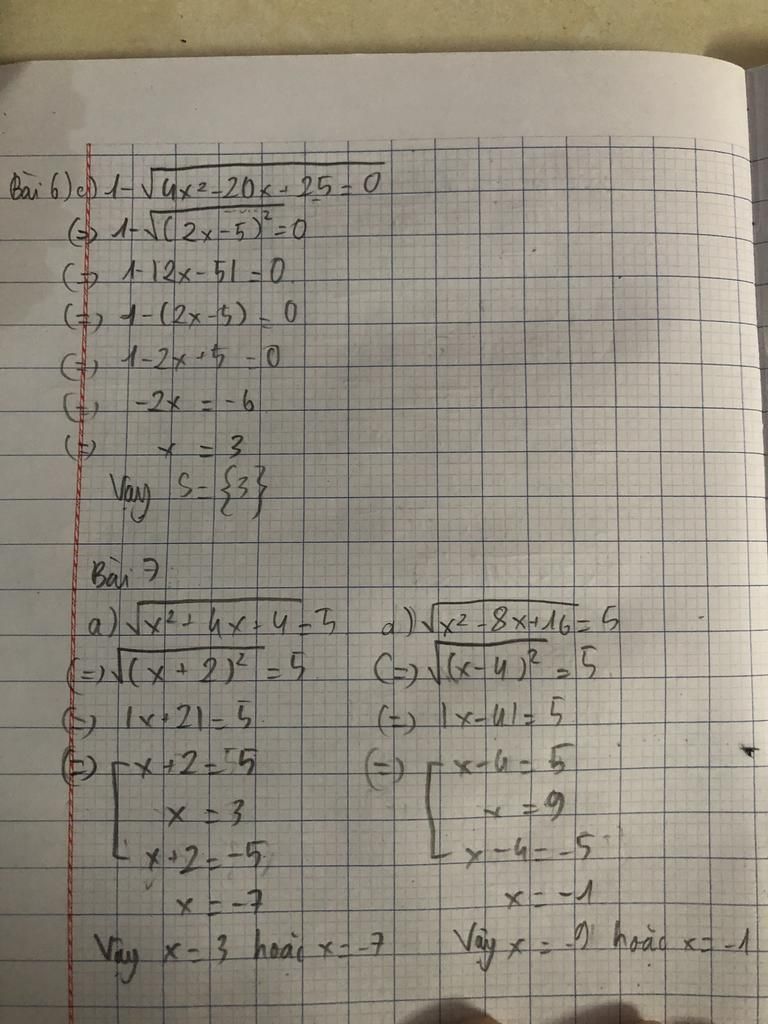 Bài 6) c) 1-√4x²-20x+25=0
(=) 1-√(2x-5)²=0
(=) 1-|2x-5|=0
(=) 1-(2x-5)=0
(=) 1-2x+5=0
(=) -2x = -6
(=) x = 3
Vậy S={3}
Bài 7
a) √x²+4x+4=5
(=) √(x+2)²=5
(=) |x+2|=5
(=) [x+2=5
x=3
x+2=-5
x=-7
Vậy x=3 hoặc x=-7
d) √x²-8x+16=5
(=) √(x-4)²=5
(=) |x-4|=5
(=) [x-4=5
x=9
x-4=-5
x=-1
Vậy x=9 hoặc x=-1